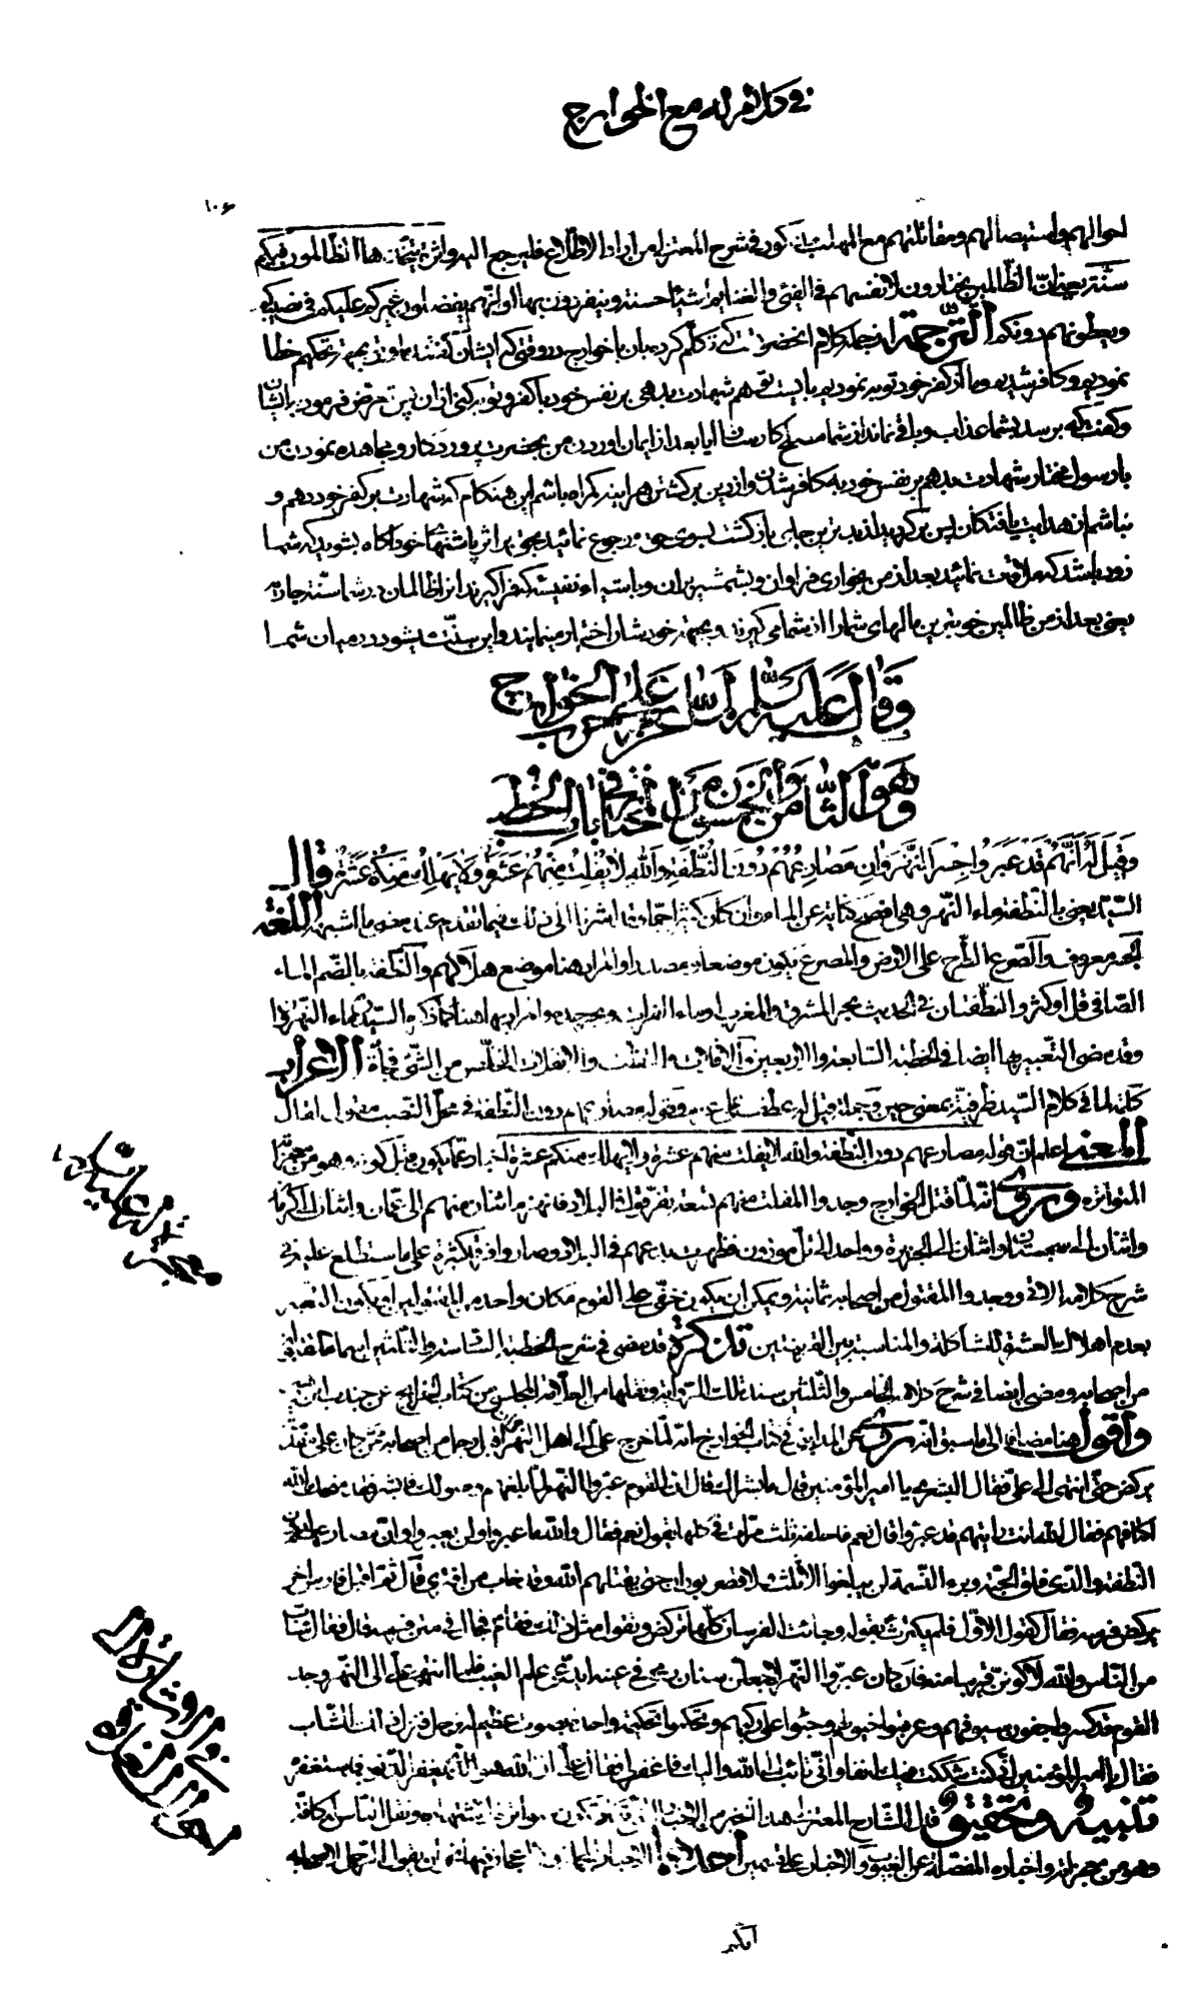 في كلام له مع الخوارج
۱۰۶
احوالهم واستيصالهم ومقاتلتهم مع المهلب مذكور في شرح المعتزلي من اراد الاطلاع فليرجع اليه واثرة يتخذها الظالمون فيكم
سنة يعني ان الظالمين يختارون لانفسهم في الفيء والغنايم اشياء حسنة وينفردون بها او انهم يفضلون غيركم عليكم في نصيبكم
ويعطونهم دونكم الترجمة از جمله كلام آنحضرتست كه تكلم كرد بان با خوارج در وقتى كه ايشان گفتند باو بجهة تحكيم خطا
نموديم و كافر شديم و ما از كفر خود توبه نموديم بايست تو هم شهادت بدهى بر نفس خود با كفر و توبه كنى از آن پس تعرض فرمود بايشان
و گفت كه برسد بشما عذاب و باقى نماند از شما مصلح كار آيا بعد از ايمان آوردن من بحضرت پروردگار و مجاهده نمودن من
با رسول مختار شهادت بدهم بر نفس خود به كافر شدن و از دين برگشتن هر آينه گمراه باشم اين هنگام كه شهادت بر كفر خود دهم و
نباشم از هدايت يافتگان پس برگرديد ببدترين جاى بازگشت بسوى حق رجوع نمائيد بجز بر اثر پاشنهاى خود آگاه بشويد كه شما
زود باشد كه ملاقات نمائيد بعد از من بخوارى فراوان و بشمشير بران و باستيداء نفيسه كه فرا گيرند آنرا ظالمان در شما سنة جاريه
يعنى بعد از من ظالمين خوبترين مالهاى شما را از شما مى گيرند و بجهة خودشان اختيار مينمايند و اين سنت بشود در ميان شما
وقال عليه السلام لما عزم على حرب الخوارج
وهو الثامن والخمسون من المختار في باب الخطب
وقيل له انهم قد عبروا جسر النهروان مصارعهم دون النطفة والله لا يفلت منهم عشرة ولا يهلك منكم عشرة قال
السيد يعني بالنطفة ماء النهر وهي افصح كناية عن الماء وان كان كثيرا جما وقد اشرنا الى ذلك فيما تقدم عند مضى ما اشبهه اللغة
الجسر معروف والصرع الطرح على الارض والمصرع يكون موضعا ومصدرا والمراد هنا موضع هلاكهم والنطفة بالضم الماء
الصافي قل او كثر والنطفتان في الحديث بحر المشرق والمغرب او ماء الفرات والمراد بها هنا كما ذكره السيد ماء النهر
وقد مضى التعبير بها ايضا في الخطبة السابعة والاربعين والافلات والانفلات التخلص من الشيء فجأة الاعراب
كلمة لما في كلام السيد ظرفية بمعنى حين وجملة قيل له عطف على عزم وقوله مصارعهم دون النطفة في محل النصب مقول لقال
المعنى اعلم ان قوله مصارعهم دون النطفة والله لا يفلت منهم عشرة ولا يهلك منكم عشرة اخبار عما يكون قبل كونه وهو من معجزاته
المتواترة وروى انه لما قتل الخوارج وجدوا المفلت منهم تسعة تفرقوا في البلاد فانهزم اثنان منهم الى عمان واثنان الى كرمان
واثنان الى سجستان واثنان الى الجزيرة وواحد الى تل موزون فظهرت بدعهم في البلاد وصاروا فرقا كثيرة على ما ستطلع عليه في
شرح كلامه الاتي ووجدوا المقتول من اصحابه ثمانية ويمكن ان يكون خفي على القوم مكان واحد من المقتولين او يكون التعبير
بعدم اهلاك العشرة للمشاكلة والمناسبة بين القرينتين تذكرة قد مضى في شرح الخطبة السادسة والثلثين
من اصحابه ومضى ايضا في شرح كلامه الخامس والثلثين سند تلك الرواية ونقلها من العلامة المجلسي من كتاب الخرايج عن جندب بن زهير
واقول هنا مضافا الى ما سبق انه روى عن المدايني في كتاب الخوارج انه لما خرج على الى اهل النهر اقبل رجل من اصحابه ممن كان على مقدمته
يركض حتى انتهى الى علي فقال البشرى يا امير المؤمنين قال ما بشراك قال ان القوم عبروا النهر لما بلغهم وصولك فابشر فقد منحك الله
اكتافهم فقال الله انت رايتهم قد عبروا قال نعم فاحلفه ثلث مرات في كلها يقول نعم فقال والله ما عبروا ولن يعبروا وان مصارعهم لدون
النطفة والذي فلق الحبة وبرء النسمة لن يبلغوا الاثلاث ولا قصر بوران حتى يقتلهم الله وقد خاب من افترى قال ثم اقبل فارس اخر
يركض فرسه فقال كقول الاول فلم يكترث بقوله وجاءت الفرسان كلها تركض وتقول مثل ذلك فقام فجال في متن فرسه قال فقال شاب
من الناس والله لاكونن قريبا منه فان كان عبروا النهر لاجعلن سنان رمحي في عينه ايدعى علم الغيب فلما انتهى علي الى النهر وجد
القوم قد كسروا جفون سيوفهم وعرقبوا خيولهم وجثوا على ركبهم وحكموا تحكيمة واحدة بصوت عظيم له زجل فنزل ذلك الشاب
فقال يا امير المؤمنين اني كنت شككت فيك انفا واني تائب الى الله واليك فاغفر لي فقال علي ان الله هو الذي يغفر الذنوب فاستغفره
تنبيه وتحقيق قال الشارح المعتزلي هذا الخبر من الاخبار التي تكاد تكون متواترة لاشتهاره ونقل الناس له كافة
وهو من معجزاته واخباره المفصلة عن الغيوب والاخبار على قسمين احدهما الاخبار المجملة ولا اعجاز فيها نحو ان يقول الرجل لاصحابه
انكم